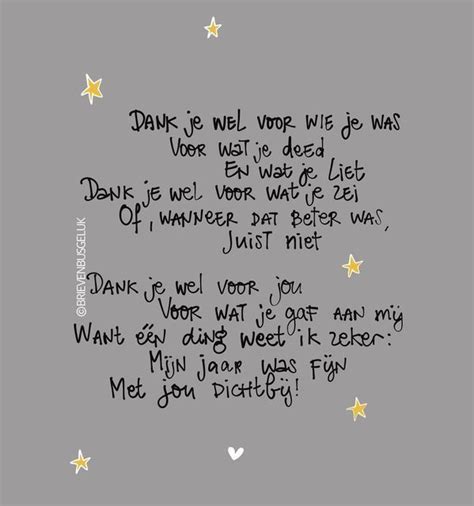 Dank je wel voor wie je was
Voor wat je deed
En wat je liet
Dank je wel voor wat je zei
Of, wanneer dat beter was,
Juist niet
Dank je wel voor jou
Voor wat je gaf aan mij
Want één ding weet ik zeker:
Mijn jaar was fijn
Met jou dichtbij!
©BRIEVENBUSGELUK